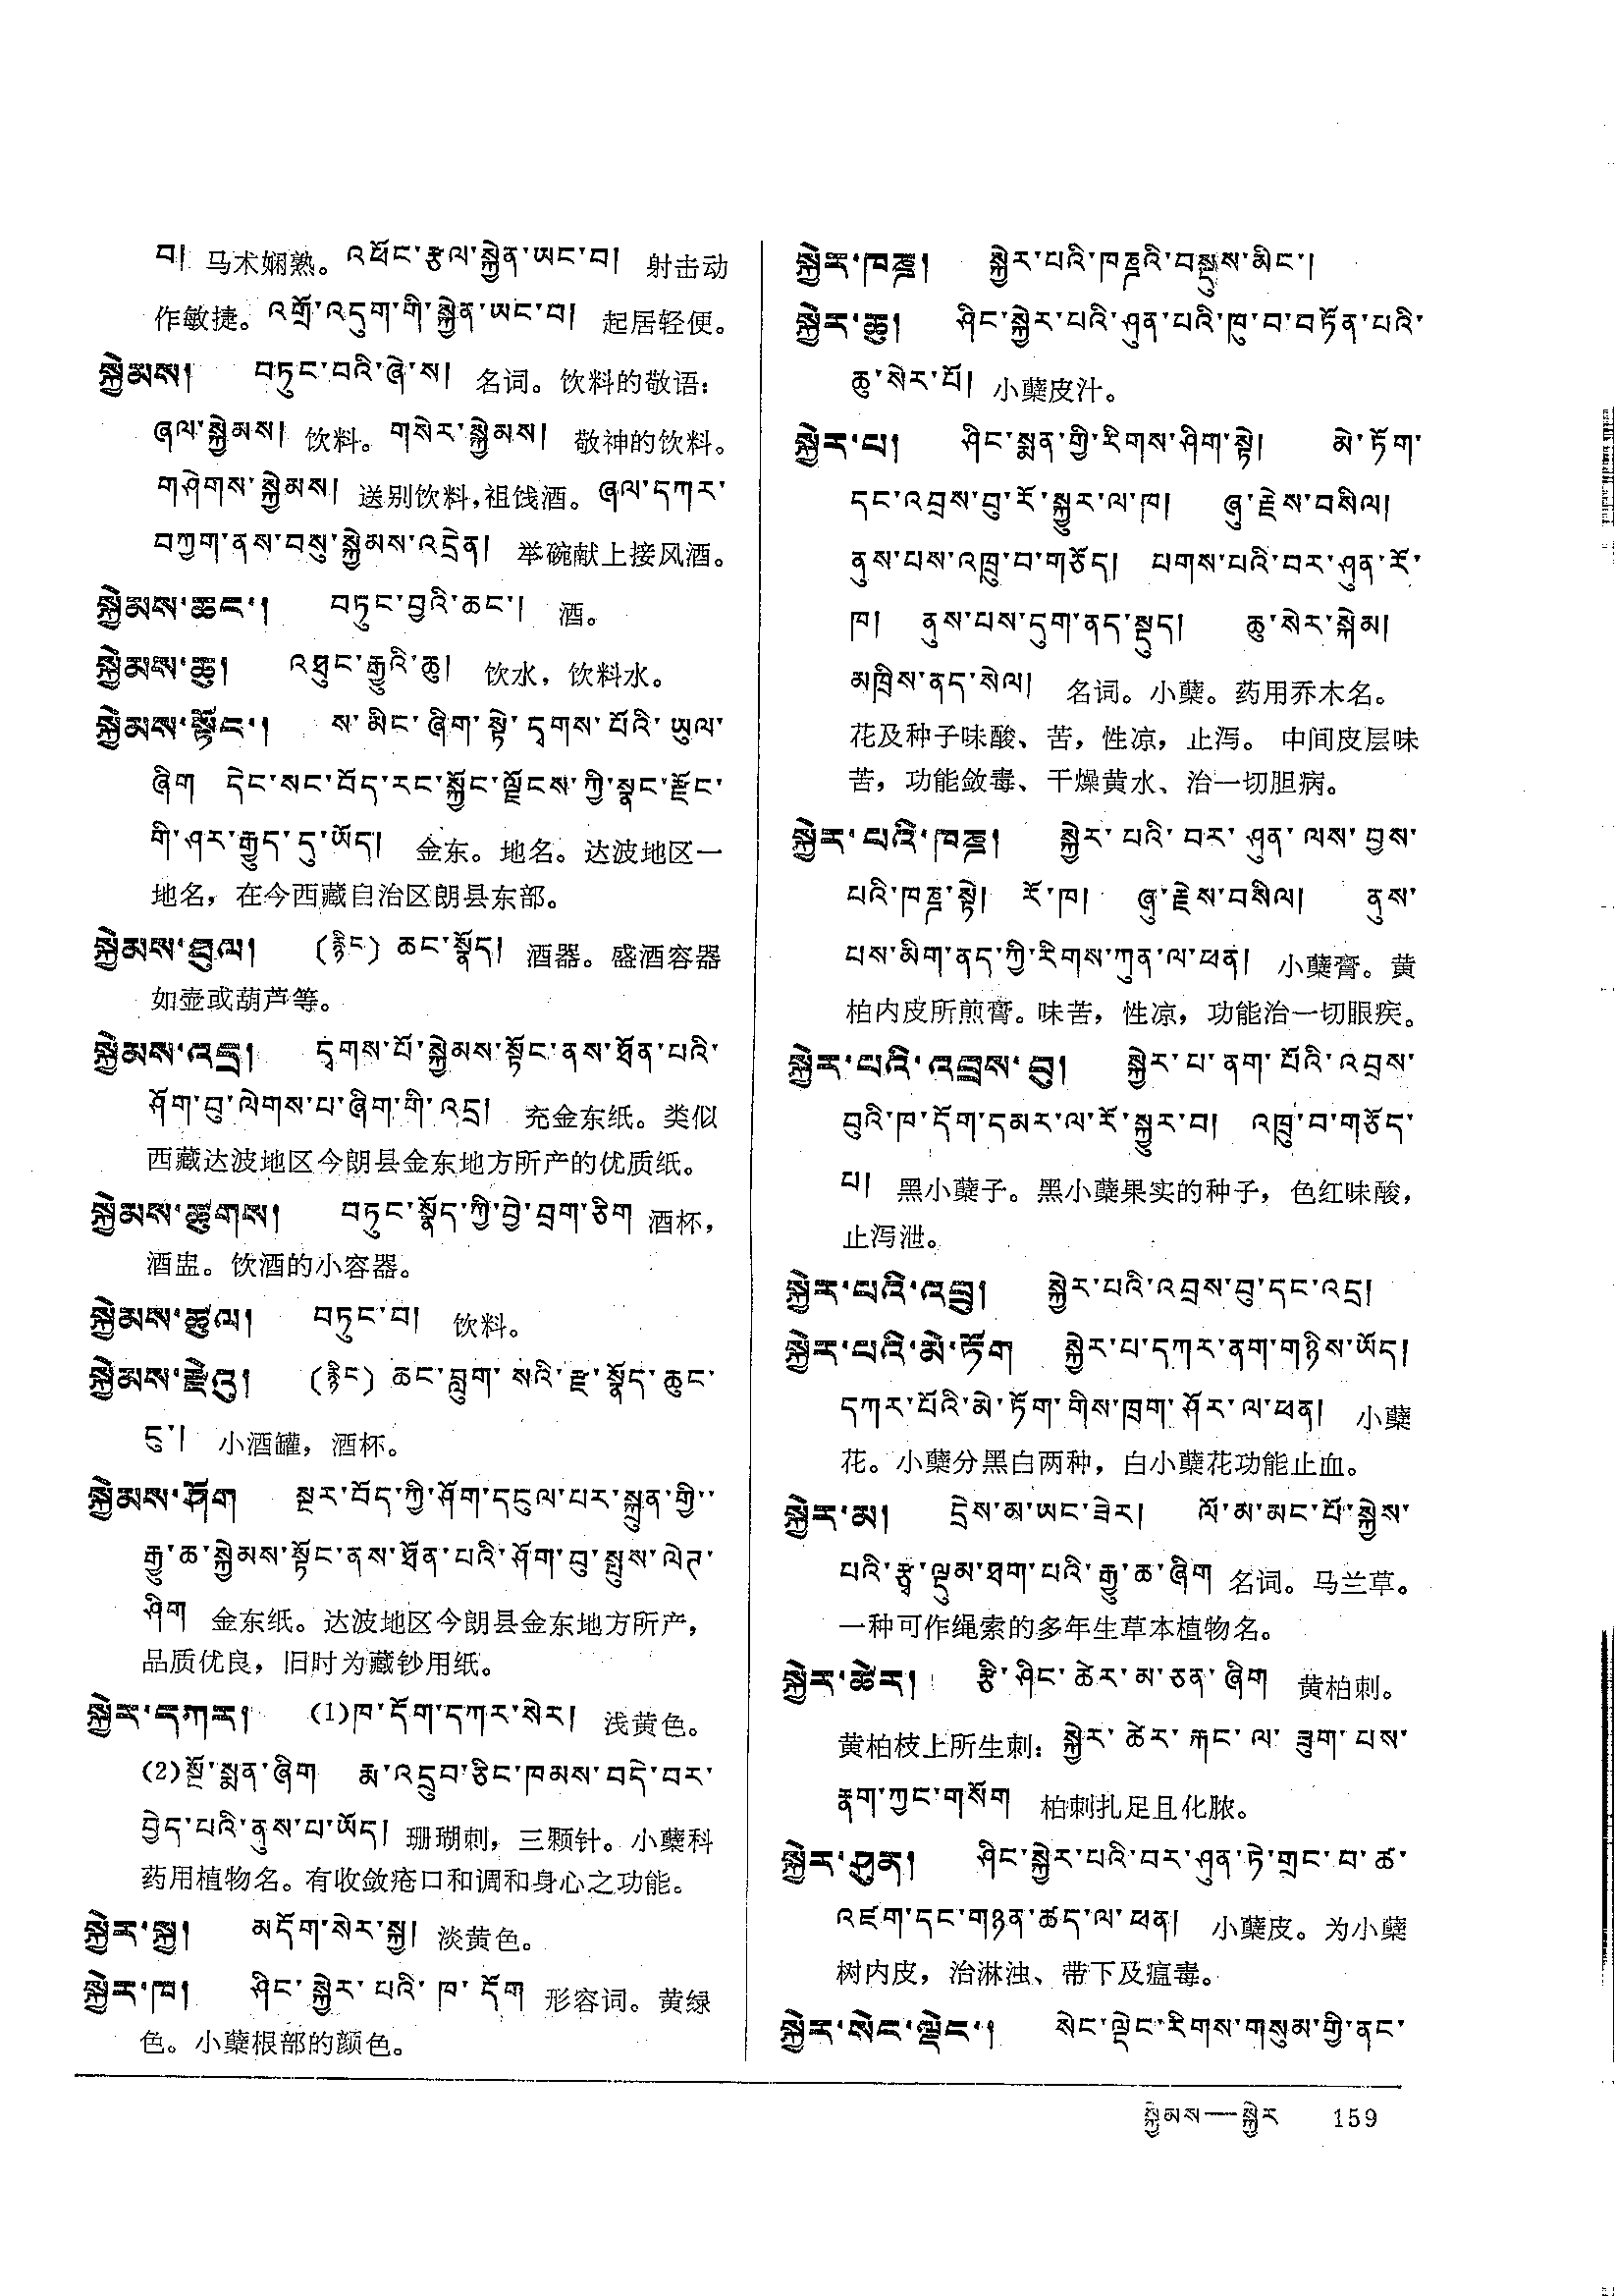 བ། 马术娴熟。འཕོང་རྩལ་སྐྱེན་ཡང་བ། 射击动
作敏捷。འགྲོ་འདུག་གི་སྐྱེན་ཡང་བ། 起居轻便。
སྐྱེམས། བཏུང་བའི་ཞེ་ས། 名词。饮料的敬语：
ཞལ་སྐྱེམས། 饮料。གསེར་སྐྱེམས། 敬神的饮料。
གཤེགས་སྐྱེམས། 送别饮料,祖饯酒。ཞལ་དཀར་
བཀྱག་ནས་བསུ་སྐྱེམས་འདྲེན། 举碗献上接风酒。
སྐྱེམས་ཆང་། བཏུང་བྱའི་ཆང་། 酒。
སྐྱེམས་ཆུ། འཐུང་རྒྱུའི་ཆུ། 饮水，饮料水。
སྐྱེམས་སྟོང་། ས་མིང་ཞིག་སྟེ་དྭགས་པོའི་ཡུལ་
ཞིག དེང་སང་བོད་རང་སྐྱོང་ལྗོངས་ཀྱི་སྣང་རྫོང་
གི་ཤར་རྒྱུད་དུ་ཡོད། 金东。地名。达波地区一
地名，在今西藏自治区朗县东部。
སྐྱེམས་ཐུལ། (རྙིང) ཆང་སྣོད། 酒器。盛酒容器
如壶或葫芦等。
སྐྱེམས་འདྲ། དྭགས་པོ་སྐྱེམས་སྟོང་ནས་ཐོན་པའི་
ཤོག་བུ་ལེགས་པ་ཞིག་གི་འདྲ། 充金东纸。类似
西藏达波地区今朗县金东地方所产的优质纸。
སྐྱེམས་ཚུགས། བཏུང་སྣོད་ཀྱི་བྱེ་བྲག་ཅིག 酒杯，
酒盅。饮酒的小容器。
སྐྱེམས་ཚུལ། བཏུང་བ། 饮料。
སྐྱེམས་རྫེའུ། (རྙིང) ཆང་བླུག་སའི་རྫ་སྣོད་ཆུང་
ངུ་། 小酒罐，酒杯。
སྐྱེམས་ཤོག སྔར་བོད་ཀྱི་ཤོག་དངུལ་པར་སྐྲུན་གྱི་
རྒྱུ་ཆ་སྐྱེམས་སྟོང་ནས་ཐོན་པའི་ཤོག་བུ་སྤུས་ལེགས་
ཤིག 金东纸。达波地区今朗县金东地方所产，
品质优良，旧时为藏钞用纸。
སྐྱེར་དཀར། (1)ཁ་དོག་དཀར་སེར། 浅黄色。
(2)སྔོ་སྨན་ཞིག རྨ་འདྲུབ་ཅིང་ཁམས་བདེ་བར་
བྱེད་པའི་ནུས་པ་ཡོད། 珊瑚刺，三颗针。小蘗科
药用植物名。有收敛疮口和调和身心之功能。
སྐྱེར་སྐྱ། མདོག་སེར་སྐྱ། 淡黄色。
སྐྱེར་ཁ། ཤིང་སྐྱེར་པའི་ཁ་དོག 形容词。黄绿
色。小蘗根部的颜色。
སྐྱེར་ཁཎྜ། སྐྱེར་པའི་ཁཎྜའི་བསྡུས་མིང་།
སྐྱེར་ཆུ། ཤིང་སྐྱེར་པའི་ཤུན་པའི་ཁུ་བ་བཏོན་པའི་
ཆུ་སེར་པོ། 小蘗皮汁。
སྐྱེར་པ། ཤིང་སྨན་གྱི་རིགས་ཤིག་སྟེ། མེ་ཏོག་
དང་འབྲས་བུ་རོ་སྐྱུར་ལ་ཁ། ཞུ་རྗེས་བསིལ།
ནུས་པས་འཁྲུ་བ་གཅོད། པགས་པའི་བར་ཤུན་རོ་
ཁ། ནུས་པས་དུག་ནད་སྡུད། ཆུ་སེར་སྐེམ།
མཁྲིས་ནད་སེལ། 名词。小蘗。药用乔木名。
花及种子味酸、苦，性凉，止泻。 中间皮层味
苦，功能敛毒、干燥黄水、治一切胆病。
སྐྱེར་པའི་ཁཎྜ། སྐྱེར་པའི་བར་ཤུན་ལས་བྱས་
པའི་ཁཎྜ་སྟེ། རོ་ཁ། ཞུ་རྗེས་བསིལ། ནུས་
པས་མིག་ནད་ཀྱི་རིགས་ཀུན་ལ་ཕན། 小蘗膏。黄
柏内皮所煎膏。味苦，性凉，功能治一切眼疾。
སྐྱེར་པའི་འབྲས་བུ། སྐྱེར་པ་ནག་པོའི་འབྲས་
བུའི་ཁ་དོག་དམར་ལ་རོ་སྐྱུར་བ། འཁྲུ་བ་གཅོད་
པ། 黑小蘗子。黑小蘗果实的种子，色红味酸，
止泻泄。
སྐྱེར་པའི་འབྲུ། སྐྱེར་པའི་འབྲས་བུ་དང་འདྲ།
སྐྱེར་པའི་མེ་ཏོག སྐྱེར་པ་དཀར་ནག་གཉིས་ཡོད།
དཀར་པོའི་མེ་ཏོག་གིས་ཁྲག་ཤོར་ལ་ཕན། 小蘗
花。小蘗分黑白两种，白小蘗花功能止血。
སྐྱེར་མ། དྲེས་མ་ཡང་ཟེར། ལོ་མ་མང་པོ་སྐྱེས་
པའི་རྩྭ་ལྡུམ་ཐག་པའི་རྒྱུ་ཆ་ཞིག 名词。马兰草。
一种可作绳索的多年生草本植物名。
སྐྱེར་ཚེར། རྩི་ཤིང་ཚེར་མ་ཅན་ཞིག 黄柏刺。
黄柏枝上所生刺：སྐྱེར་ཚེར་རྐང་ལ་ཟུག་པས་
རྣག་ཀྱང་གསོག 柏刺扎足且化脓。
སྐྱེར་ཤུན། ཤིང་སྐྱེར་པའི་བར་ཤུན་ཏེ་གྲང་བ་ཚ་
འཛག་དང་གཉན་ཚད་ལ་ཕན། 小蘗皮。为小蘗
树内皮，治淋浊、带下及瘟毒。
སྐྱེར་སེང་ལྡེང་། སེང་ལྡེང་རིགས་གསུམ་གྱི་ནང་
སྐྱེམས—སྐྱེར 159